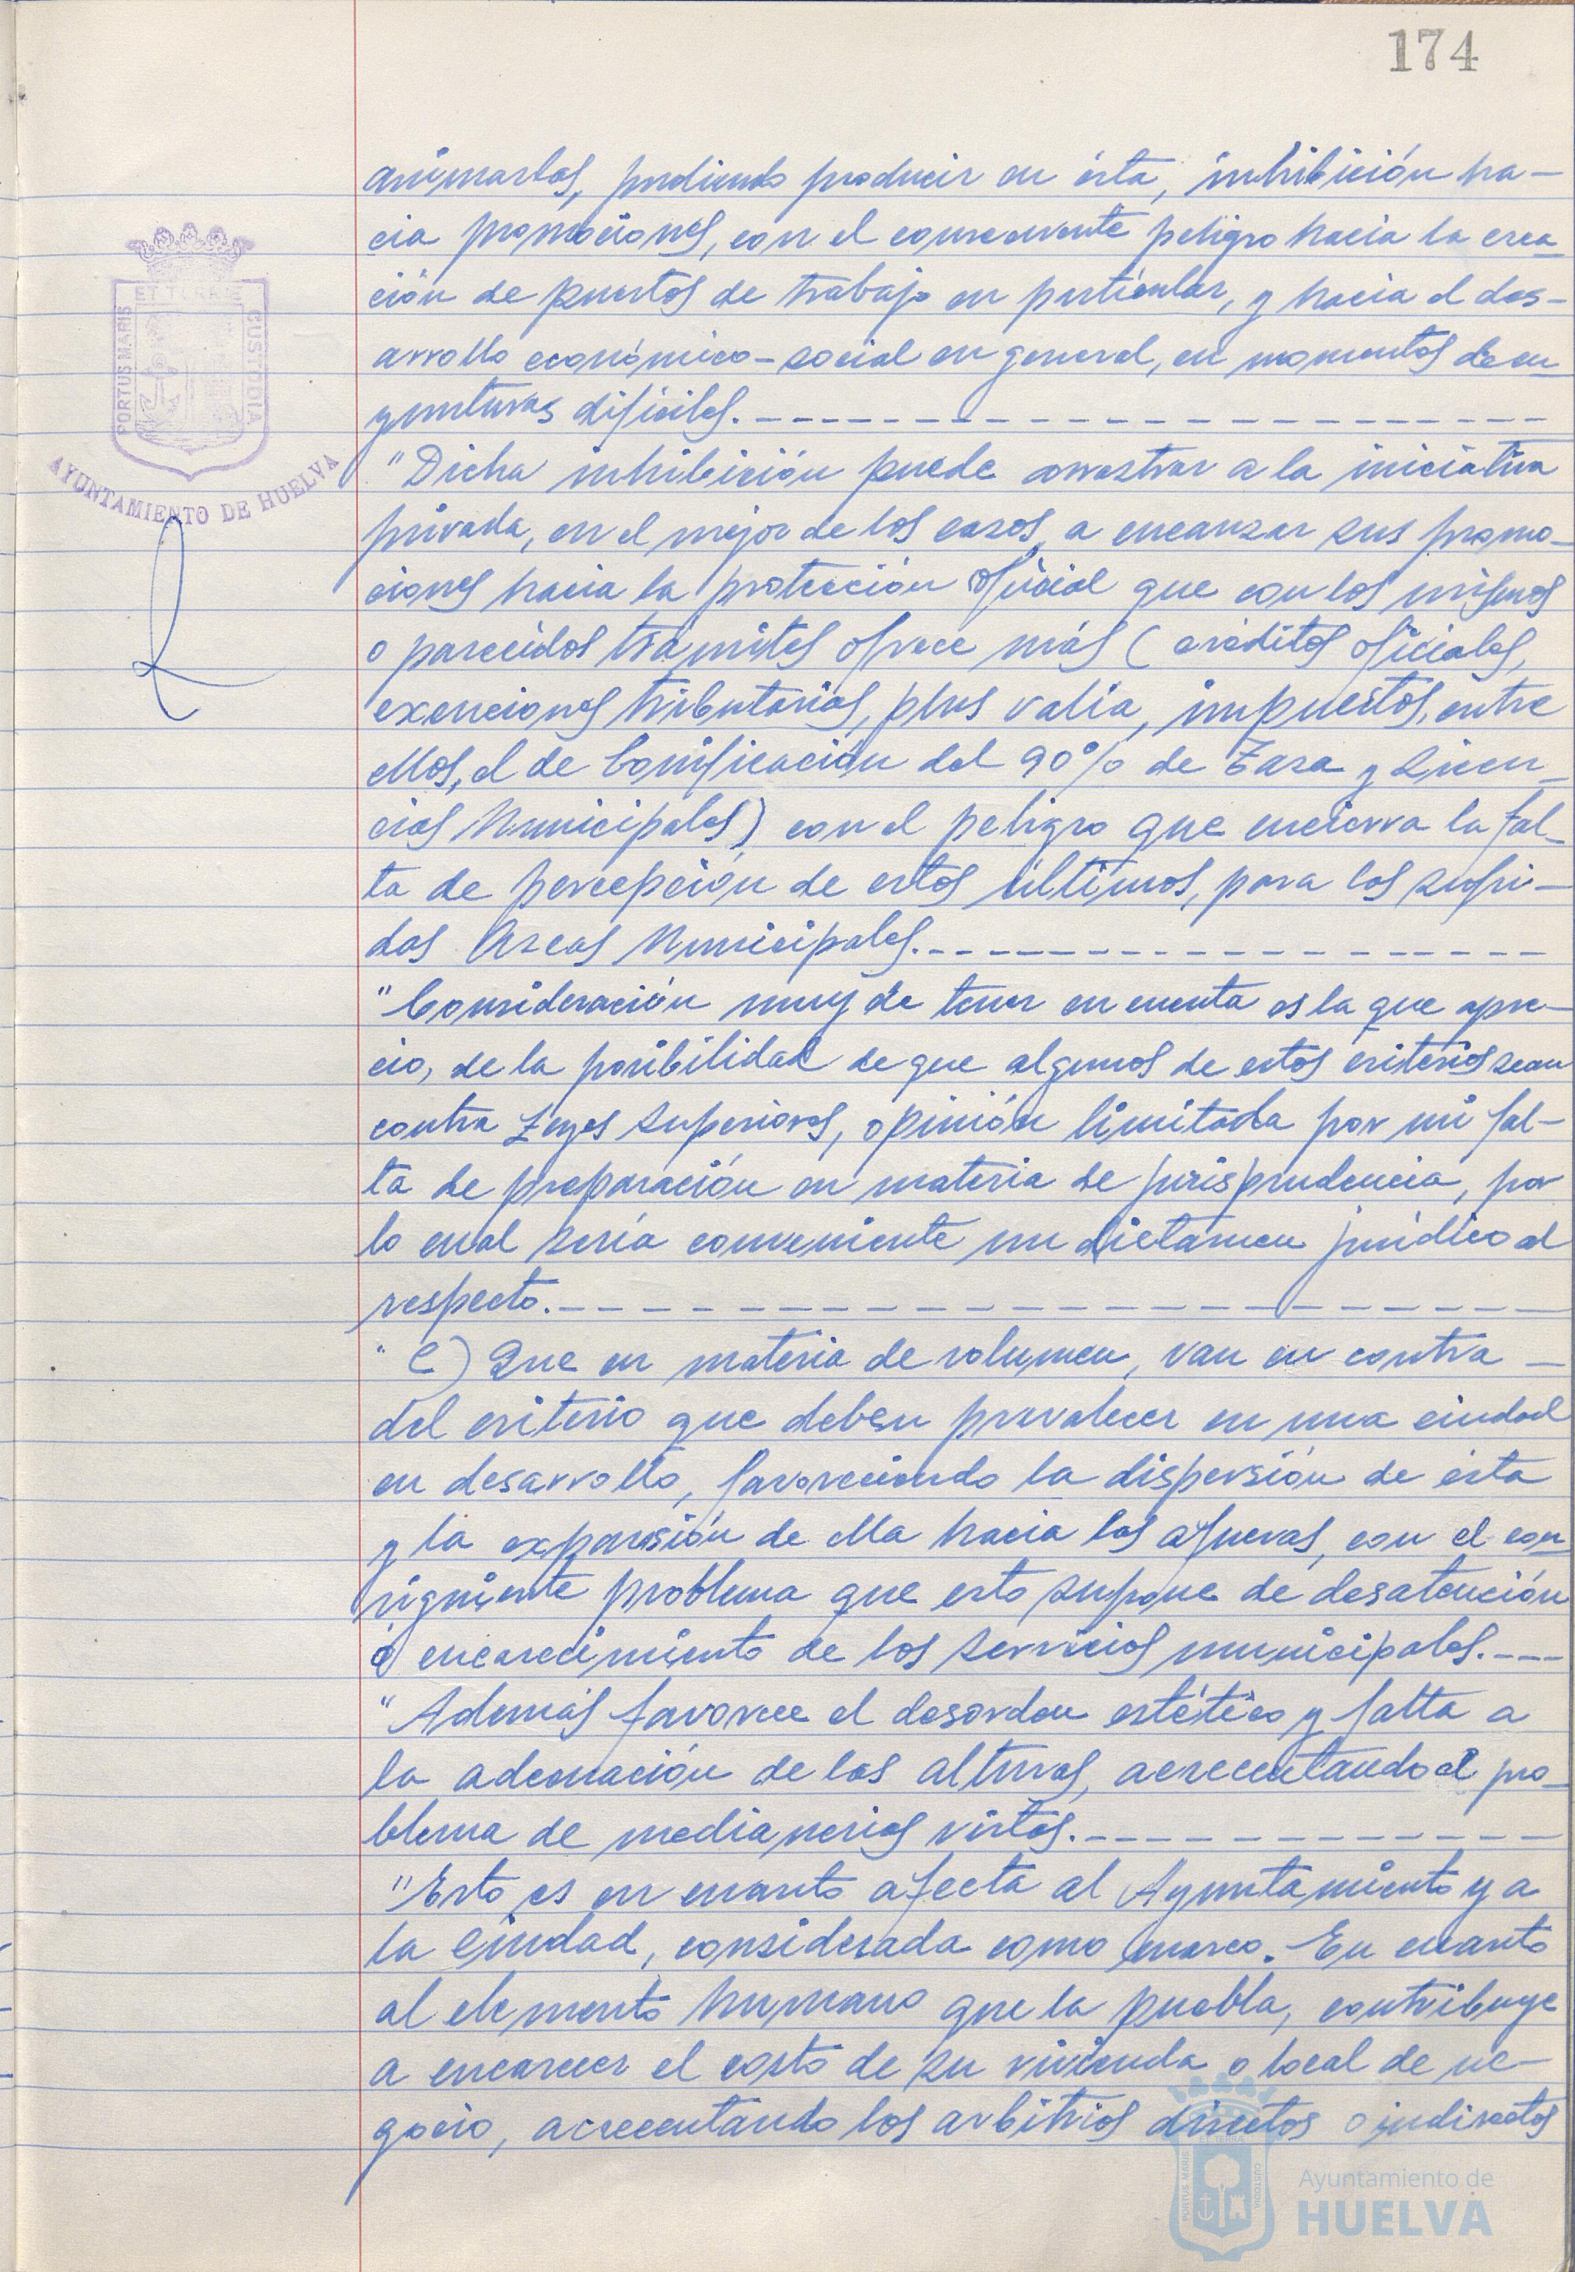 174
animarlas, pudiendo producir en ésta, inhibición ha-
cia promociones, con el consecuente peligro hacia la crea-
ción de puestos de trabajo en particular, y hacia el des-
arrollo económico-social en general, en momentos de cu-
yunturas difíciles.
"Dicha inhibición puede arrastrar a la iniciativa
privada, en el mejor de los casos, a encauzar sus promo-
ciones hacia la protección oficial que con los mismos
o parecidos trámites ofrece más (créditos oficiales,
exenciones tributarias, plus valía, impuestos, entre
ellos, el de bonificación del 90% de Tasa y Licen-
cias Municipales) con el peligro que encierra la fal-
ta de percepción de estos últimos, para las sufri-
das Arcas Municipales.
"Consideración muy de tener en cuenta es la que apre-
cio, de la posibilidad de que algunos de estos criterios sean
contra Leyes Superiores, opinión limitada por mi fal-
ta de preparación en materia de jurisprudencia, por
lo cual sería conveniente un dictamen jurídico al
respecto.
" C) Que en materia de volumen, van en contra
del criterio que deben prevalecer en una ciudad
en desarrollo, favoreciendo la dispersión de ésta
y la expansión de ella hacia las afueras, con el con-
siguiente problema que esto supone de desatención
ó encarecimiento de los servicios municipales.
"Además favorece el desorden estético y falta a
la adecuación de las alturas, acrecentando el pro-
blema de medianerias vistas.
"Esto es en cuanto afecta al Ayuntamiento y a
la Ciudad, considerada como marco. En cuanto
al elemento humano que la puebla, contribuye
a encarecer el costo de su vivienda o local de ne-
gocio, acrecentando los arbitrios directos o indirectos
PORTUS MARIS
ET TERRE
CUSTODIA
AYUNTAMIENTO DE HUELVA
PORTUS MARIS
CUSTODIA
Ayuntamiento de
HUELVA